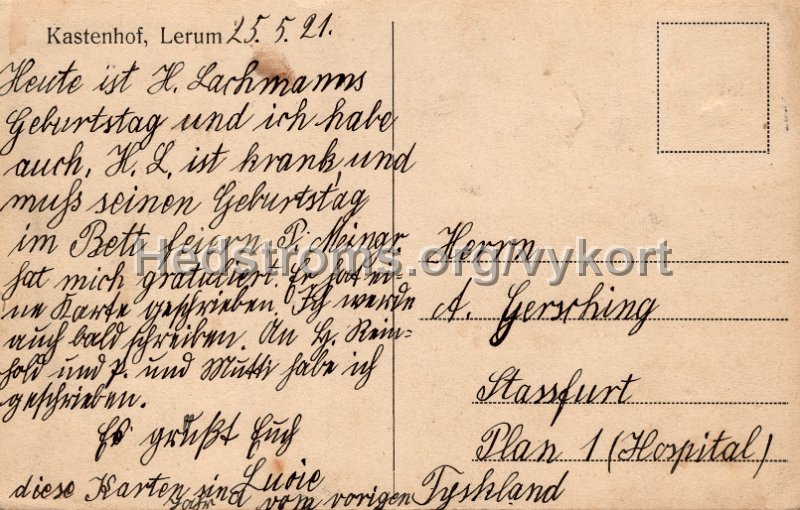 Kastenhof, Lerum 25. 5. 21.
Heute ist H. Lachmanns
Geburtstag und ich habe
auch. H. L. ist krank und
muß seinen Geburtstag
im Bett feiern. P. Meinar.
hat mich gratuliert. Er hat ei-
ne Karte geschrieben. Ich werde
auch bald schreiben. An H. Rein-
hold und P. und Mutti habe ich
geschrieben.
Es grüßt Euch
Lucie
diese Karten sind vom vorigen
Jahr
Herrn
A. Gersching
Stassfurt
Plan 1 (Hospital)
Tyskland
Hedstroms.org/vykort